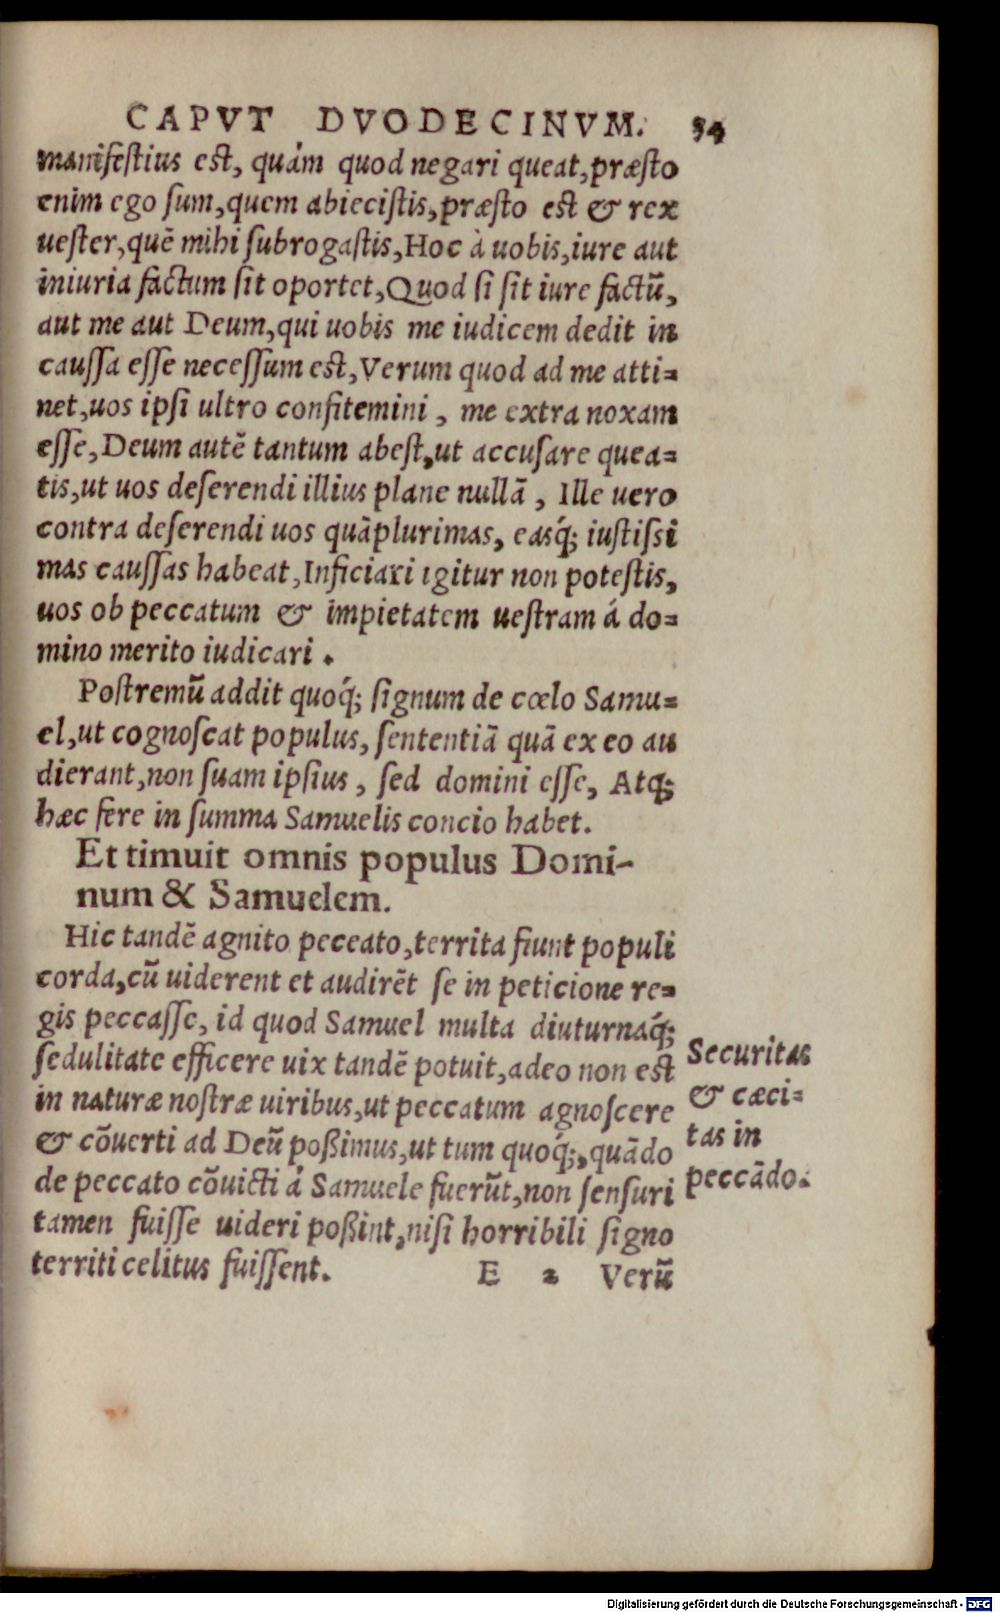 CAPVT DVODECINVM. 54
manifeſtius eſt, quàm quod negari queat, præſto
enim ego ſum, quem abieciſtis, præſto eſt & rex
ueſter, quē mihi ſubrogaſtis, Hoc à uobis, iure aut
iniuria factum ſit oportet, Quod ſi ſit iure factū,
aut me aut Deum, qui uobis me iudicem dedit in
cauſſa eſſe neceſſum eſt, Verum quod ad me atti=
net, uos ipſi ultro confitemini, me extra noxam
eſſe, Deum autē tantum abeſt, ut accuſare quea=
tis, ut uos deſerendi illius plane nullā, Ille uero
contra deſerendi uos quāplurimas, easq́; iuſtiſsi
mas cauſſas habeat, Inficiari igitur non poteſtis,
uos ob peccatum & impietatem ueſtram á do=
mino merito iudicari.
Poſtremū addit quoq́; ſignum de cœlo Samu=
el, ut cognoſcat populus, ſententiā quā ex eo au
dierant, non ſuam ipſius, ſed domini eſſe, Atq́;
hæc fere in ſumma Samuelis concio habet.
Et timuit omnis populus Domi-
num & Samuelem.
Hic tandē agnito peceato, territa fiunt populi
corda, cū uiderent et audirēt ſe in peticione re=
gis peccaſſe, id quod Samuel multa diuturnaq́;
ſedulitate efficere uix tandē potuit, adeo non eſt
in naturæ noſtræ uiribus, ut peccatum agnoſcere
& cōuerti ad Deū poßimus, ut tum quoq́;, quādo
de peccato cōuicti á Samuele fuerūt, non ſenſuri
tamen fuiſſe uideri poßint, niſi horribili ſigno
territi celitus fuiſſent.
E 2 Verū
Securitas
& cæci=
tas in
peccādo.
Digitalisierung gefördert durch die Deutsche Forschungsgemeinschaft - DFG